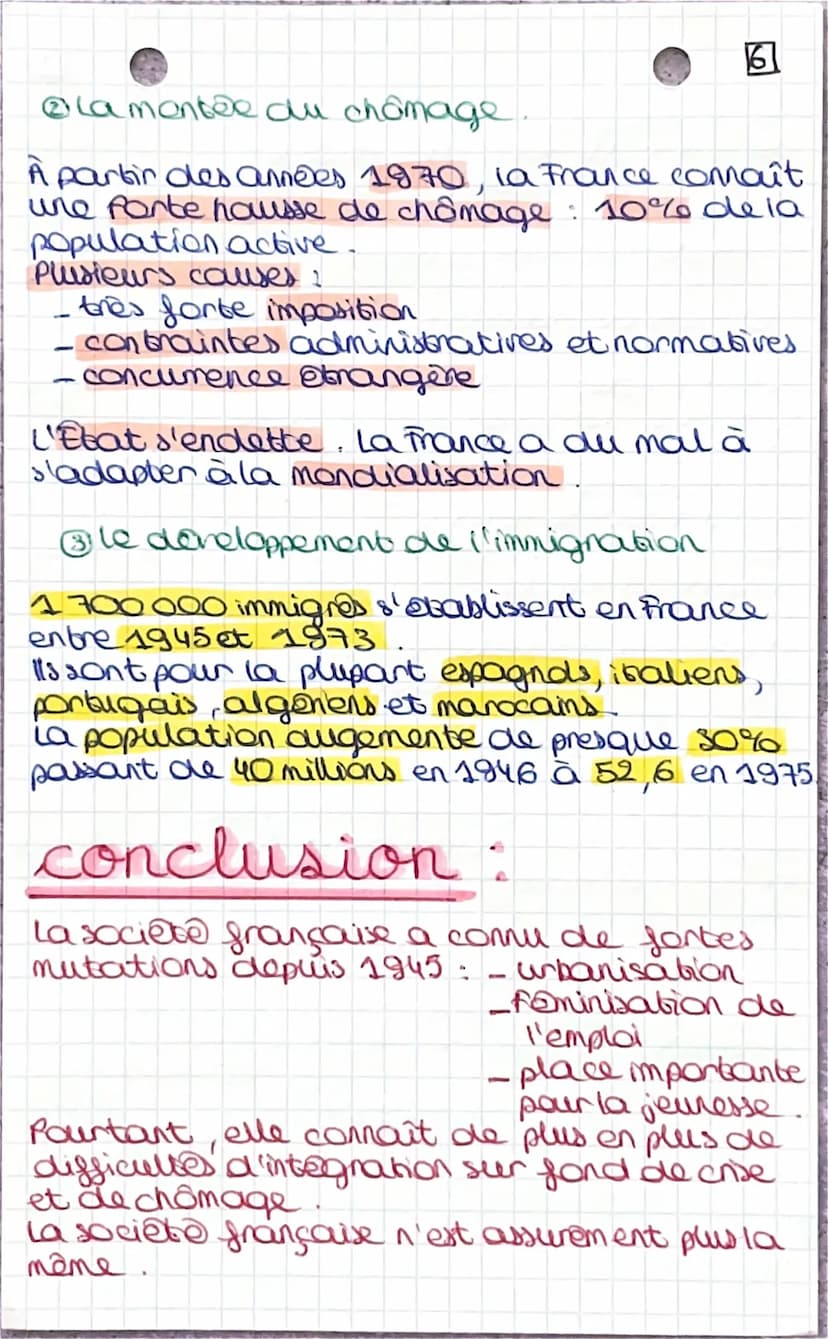 6
② La montée du chômage.
À partir des années 1970, la France connaît
une forte hausse de chômage : 10% de la
population active.
Plusieurs causes :
- très forte imposition
- contraintes administratives et normatives
- concurrence étrangère
L'État s'endette. La France a du mal à
s'adapter à la mondialisation.
③ le développement de l'immigration
1 700 000 immigrés s'établissent en France
entre 1945 et 1973.
Ils sont pour la plupart espagnols, italiens,
portugais, algériens et marocains.
La population augemente de presque 30%
passant de 40 millions en 1946 à 52,6 en 1975
conclusion :
La société française a connu de fortes
mutations depuis 1945 : - urbanisation
- féminisation de
l'emploi
- place importante
pour la jeunesse.
Pourtant, elle connaît de plus en plus de
difficultés d'intégration sur fond de crise
et de chômage.
La société française n'est assurément plus la
même.